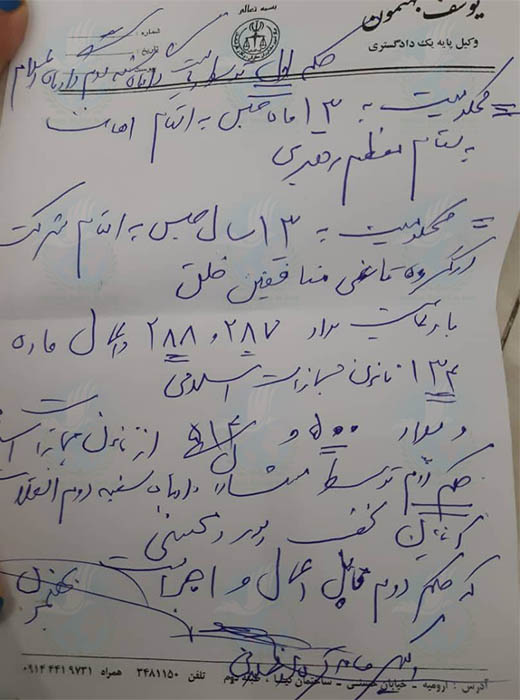 بسمه تعالی
یوسف بهنمون
وکیل پایه یک دادگستری
شماره :
تاریخ :
حکم اول توسط ریاست شعبه دوم دادگاه
محکومیت به ۱۳ ماه حبس به اتهام اهانت
به مقام معظم رهبری
= محکومیت به ۱۳ سال حبس به اتهام شرکت
در گروه یاغی منافقین خلق
با رعایت مواد ۲۸۷ و ۲۸۸ و اعمال ماده
۱۳۴ قانون مجازات اسلامی
و مواد ۵۰۰ و ۵۱۴ از قانون مجازات
حکم دوم توسط مستشار دادگاه شعبه دوم انقلاب
که حکم دوم قابل اعمال و اجراست
آدرس : ارومیه - خیابان - ساختمان - طبقه دوم تلفن ۳۴۸۱۱۵۰ همراه ۰۹۱۴ ۴۴۱ ۹۷۳۱